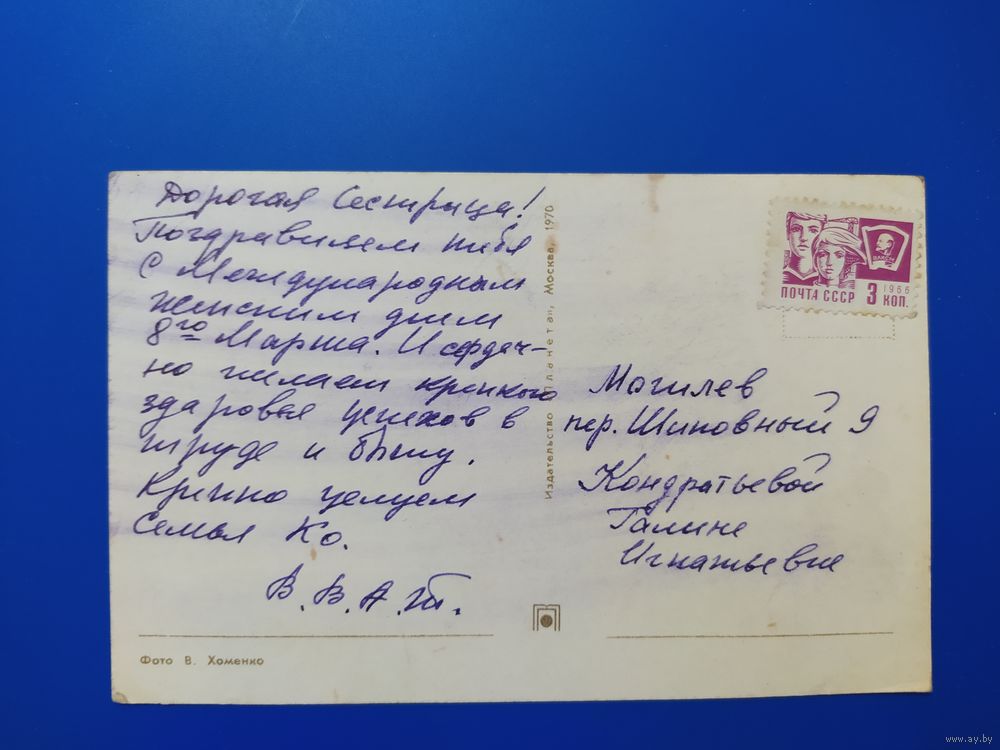 Дорогая Сестрица!
Поздравляем тебя
с Международным
женским днем
8го Марта. И сердеч-
но желаем крепкого
здаровья успехов в
труде и быту.
Крепко целуем
Семья Ко.
В. В. А. Т.
Фото В. Хоменко
Издательство „Планета", Москва, 1970
ВЛКСМ
1966
ПОЧТА СССР 3 КОП.
Могилев
пер. Шиповный 9
Кондратьевой
Галине
Игнатьевне
www.ay.by